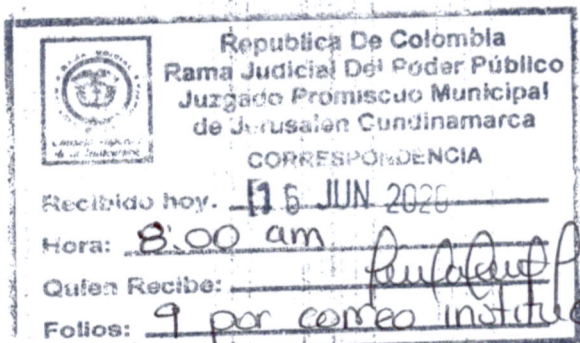 Republica De Colombia
Rama Judicial Del Poder Público
Juzgado Promiscuo Municipal
de Jerusalen Cundinamarca
CORRESPONDENCIA
Recibido hoy. 16 JUN 2020
Hora: 8:00 am
Quien Recibe:
Folios: 9 por correo institu